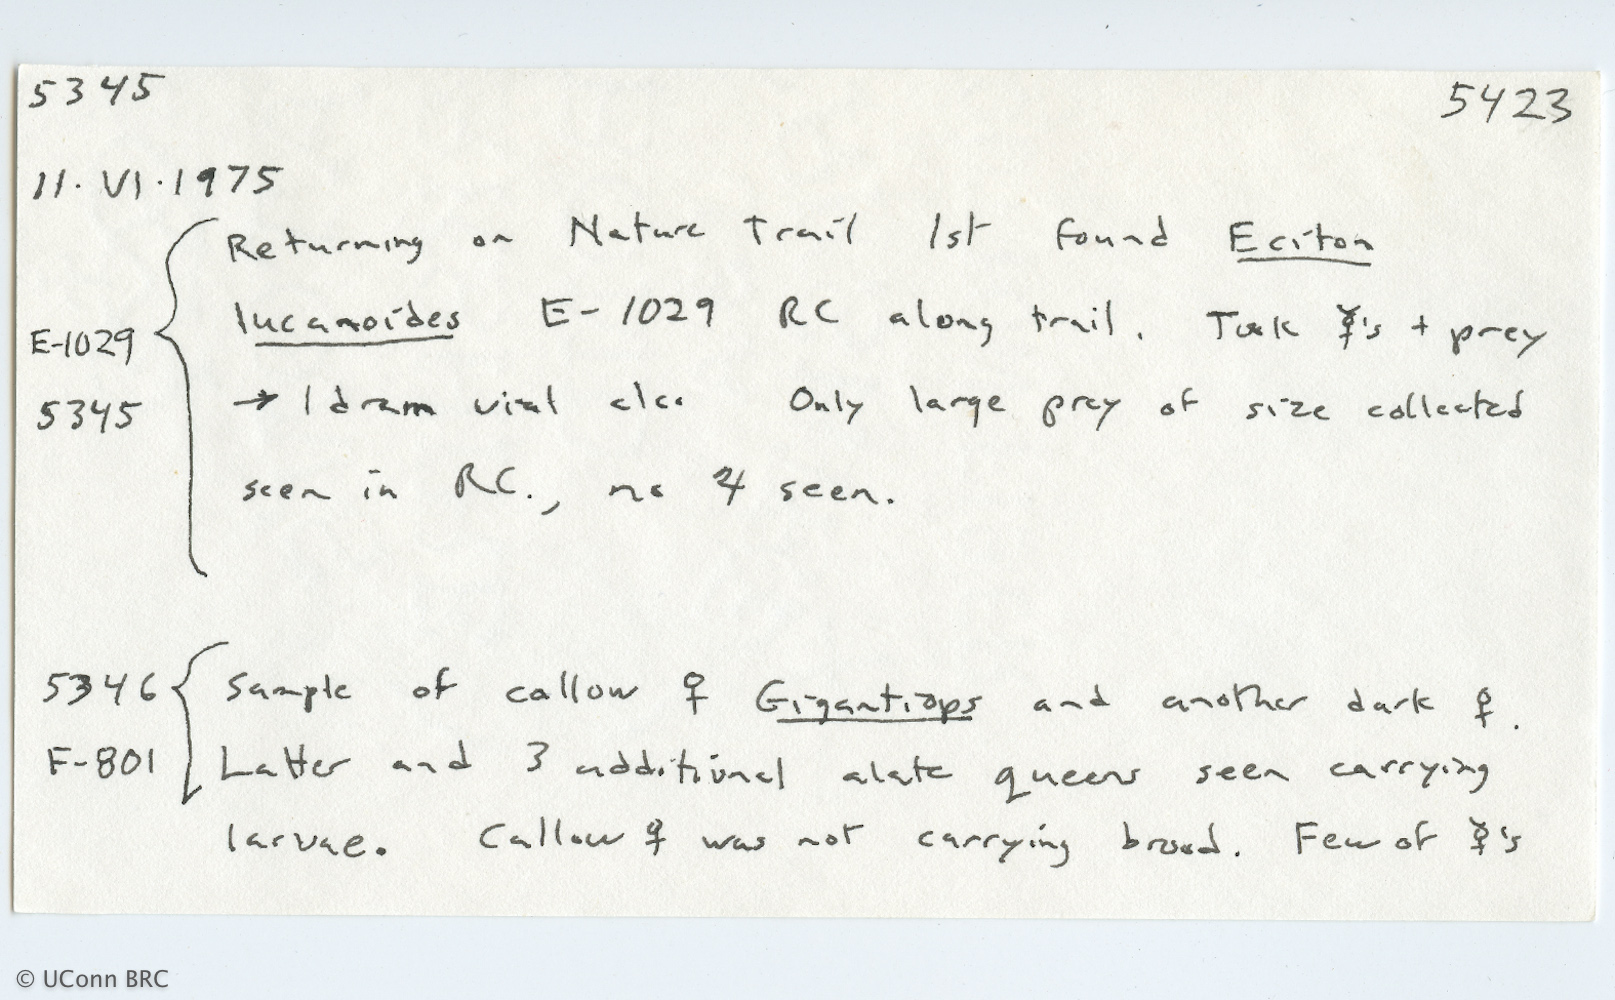 5345 5423
11.VI.1975
Returning on Nature Trail 1st found Eciton
E-1029 lucanoides E-1029 RC along trail. Took ☿'s + prey
5345 → 1 dram vial alc. Only large prey of size collected
seen in RC., no seen.
5346 Sample of callow ♀ Gigantiops and another dark ♀.
F-801 Latter and 3 additional alate queens seen carrying
larvae. Callow ♀ was not carrying brood. Few of ☿'s
© UConn BRC